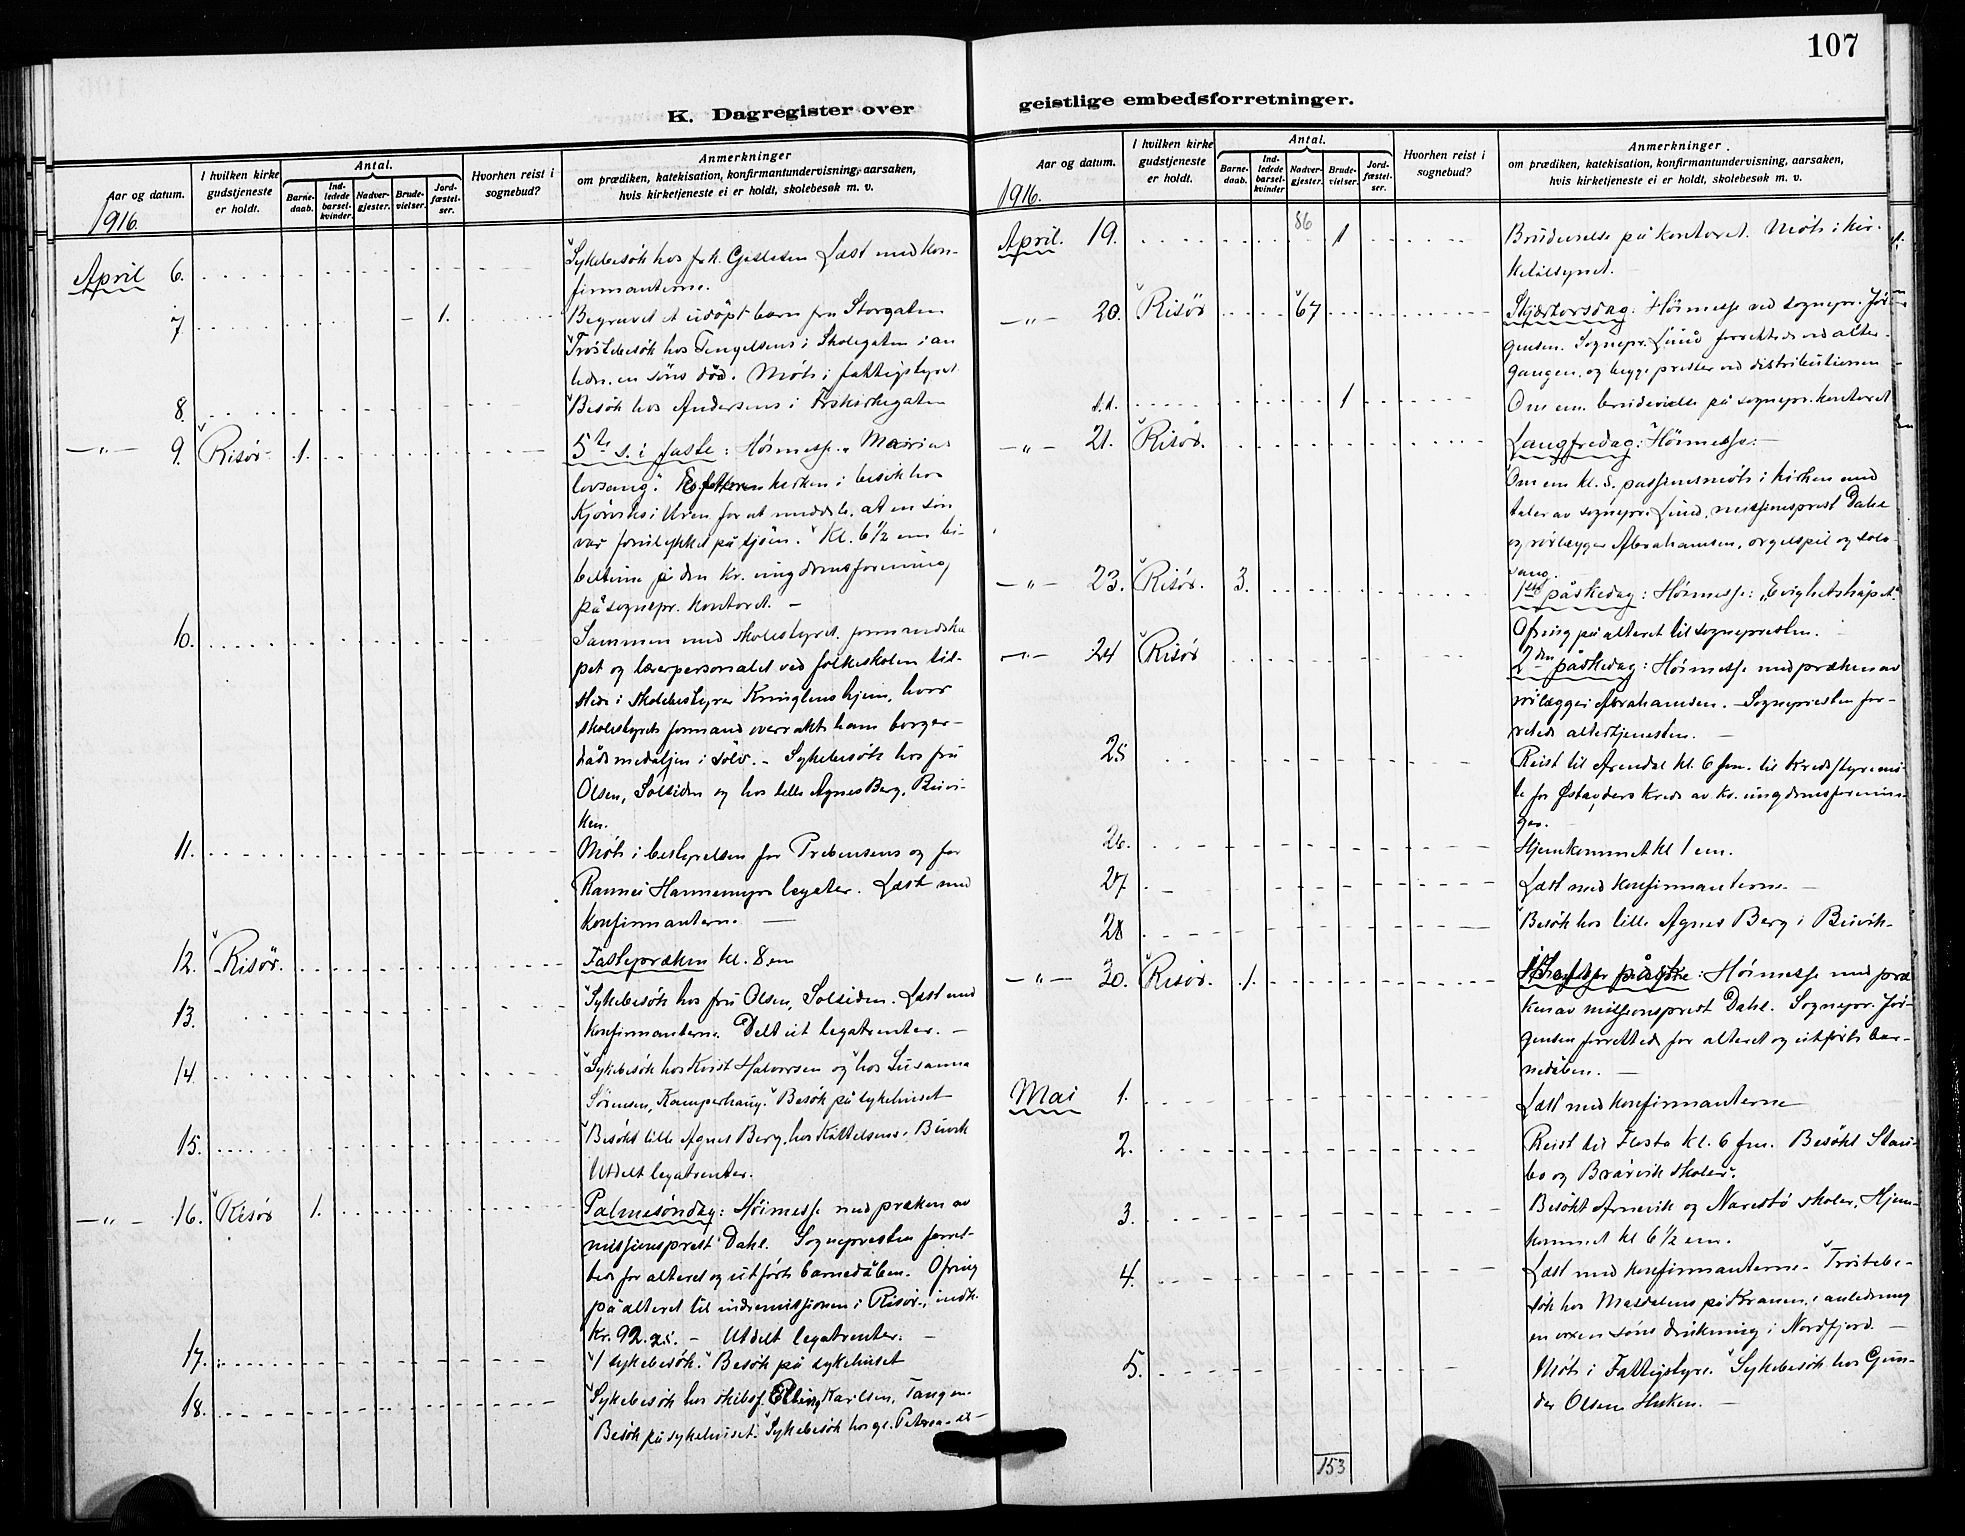 107
K. Dagregister over
geistlige embedsforretninger.
Aar og datum.
I hvilken kirke gudstjeneste er holdt.
Antal.
Barne-daab.
Ind-ledede barsel-kvinder
Nadver-gjester.
Brude-vielser.
Jord-fæstel-ser.
Hvorhen reist i sognebud?
Anmerkninger
om prædiken, katekisation, konfirmantundervisning, aarsaken,
hvis kirketjeneste ei er holdt, skolebesøk m. v.
1916.
April 6. Sykebesök hos frk. Gislesen Læst med kon-
firmanterne.
7 1. Begravet et udöpt barn fra Storgaten
Tröstebesök hos Tengelsens i Skolegaten i an
ledn. en söns död. Möte i fattigstyret
8. Besök hos Andersens i kirkegaten
—"— 9. Risör. 1. 5te s. i faste: Höimesse. "Marias
lovsang." kirken i besök hos
Kjörviks i Uren for at meddele, at en sön
var forulykket på sjöen. Kl. 6 1/2 em bi-
beltime på den kr. ungdomsforening
på sognepr. kontoret. —
10. Sammen med skolestyret, formandska
pet og lærerpersonalet ved folkeskolen til-
stede i skolebestyrer Kringlens hjem, hvor
skolestyrets formand overrakte ham borger-
dådsmedaljen i sölv. - Sykebesök hos fru
Olsen, Solsiden og hos lille Agnes Berg, Buvi-
ken.
11. Möte i bestyrelsen for Prebensens og for
Rannei Hannemyrs legater. Læst med
konfirmanterne. —
12. Risör. Fastepræken kl. 8 em
13. Sykebesök hos fru Olsen, Solsiden. Læst med
konfirmanterne. Delt ut legatrenter. —
14. Sykebesök hos Kvist Halvorsen og hos Susanna
Sørensen, Kamperhaug. Besök på sykehuset
15. Besökt lille Agnes Berg, hos Kittelsens, Buvik
Utdelt legatrenter.
—"— 16. Risör 1. Palmesöndag: Höimesse med præken av
missionsprest Dahl. Sognepresten forret-
tede for alteret og utförte barnedåben. Ofring
på alteret til indremissionen i Risör, indk.
Kr. 92.25. — Utdelt legatrenter. —
17. 1 sykebesök. Besök på sykehuset
18. Sykebesök hos skibsf. Karlsen, Tangen.
Besök på sykehuset. Sykebesök hos
Aar og datum.
I hvilken kirke gudstjeneste er holdt.
Antal.
Barne-daab.
Ind-ledede barsel-kvinder
Nadver-gjester.
Brude-vielser.
Jord-fæstel-ser.
Hvorhen reist i sognebud?
Anmerkninger.
om prædiken, katekisation, konfirmantundervisning, aarsaken,
hvis kirketjeneste ei er holdt, skolebesøk m. v.
1916.
April. 19. 86 1 Brudevielse på kontoret. Möte i kir-
ketilsynet.
—"— 20. Risör 67 Skjærtorsdag: Höimesse ved sognepr. Jör-
gensen. Sognepr. Lund forrettede ved alter-
gangen, og begge prester ved distributionen
s.d. 1 Om em. brudevielse på sognepr. kontoret
—"— 21. Risör. Langfredag: Höimesse. —
Om em kl. 5. passionsmöte i kirken med
taler av sognepr. Lund, missionsprest Dahl
og veilægger Abrahamsen, orgelspil og solo-
sang.
—"— 23. Risör. 3. 1ste påskedag: Höimesse: "Evighetshåpet."
Ofring på alteret til sognepresten.
—"— 24 Risör 2den påskedag: Höimesse med præken av
veilægger Abrahamsen. — Sognepresten for-
rettede altertjenesten. —
25 Reist til Arendal kl. 6 fm. til kredsstyremö-
te for Østagders kreds av kr. ungdomsforenin-
ger.
26. Hjemkommet kl 1 em.
27 Læst med konfirmanterne. —
28 Besök hos lille Agnes Berg i Buvik-
—"— 30. Risör. 1. påske: Höimesse med præ
ken av missionsprest Dahl. Sognepr. Jör-
gensen forrettede for alteret og utförte bar-
nedåben. —
Mai 1. Læst med konfirmanterne
2. Reist til Flosta kl. 6 fm. Besökt Stau-
bo og Brårvik skoler.
3. Besökt Arnevik og Narestö skoler. Hjem-
kommet kl 6 1/2 em.
4. Læst med konfirmanterne. Tröstebe-
sök hos Masdalens på Kranen, i anledning
en voxen söns drukning i Nordfjord. —
5. Möte i Fattigstyre. Sykebesök hos Gun-
der Olsen Huken. —
153